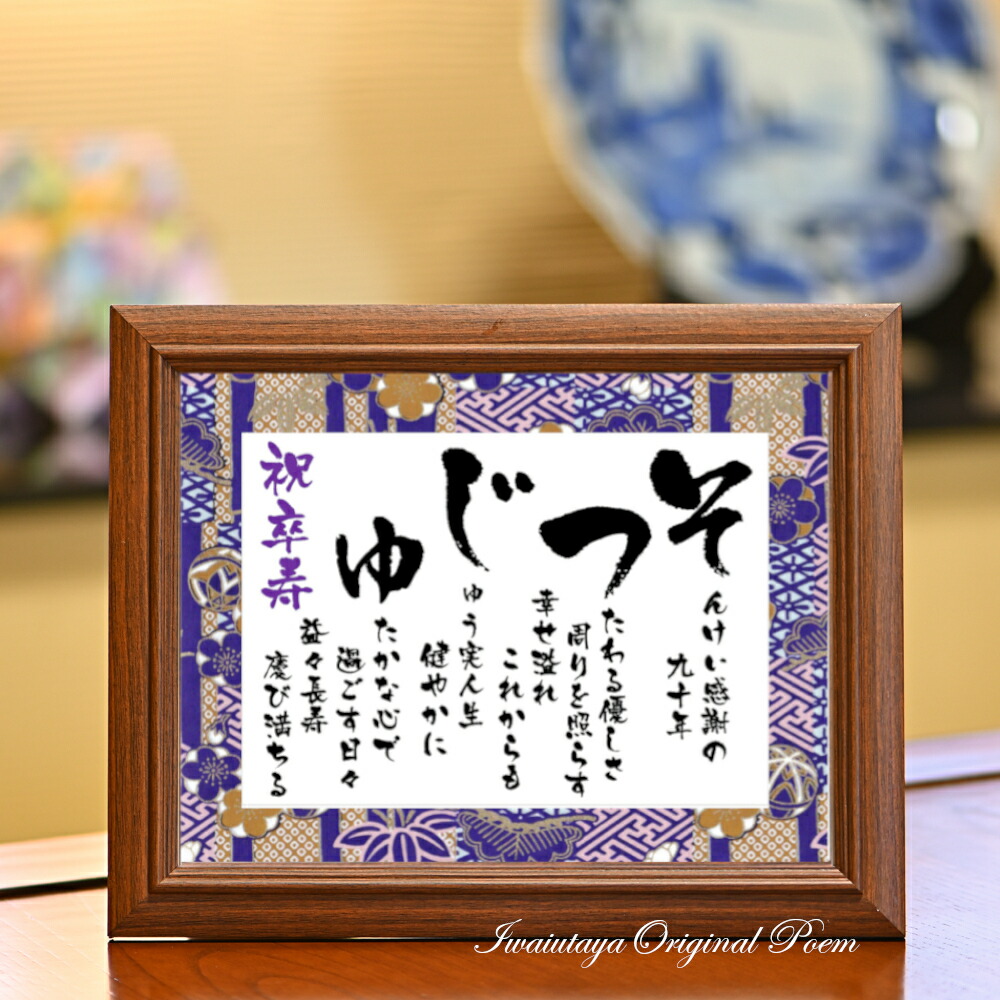 そんけい感謝の
九十年
つたわる優しさ
周りを照らす
幸せ溢れ
これからも
じゅう実人生
健やかに
ゆたかな心で
過ごす日々
益々長寿
慶び満ちる
祝卒寿
Iwaiutaya Original Poem